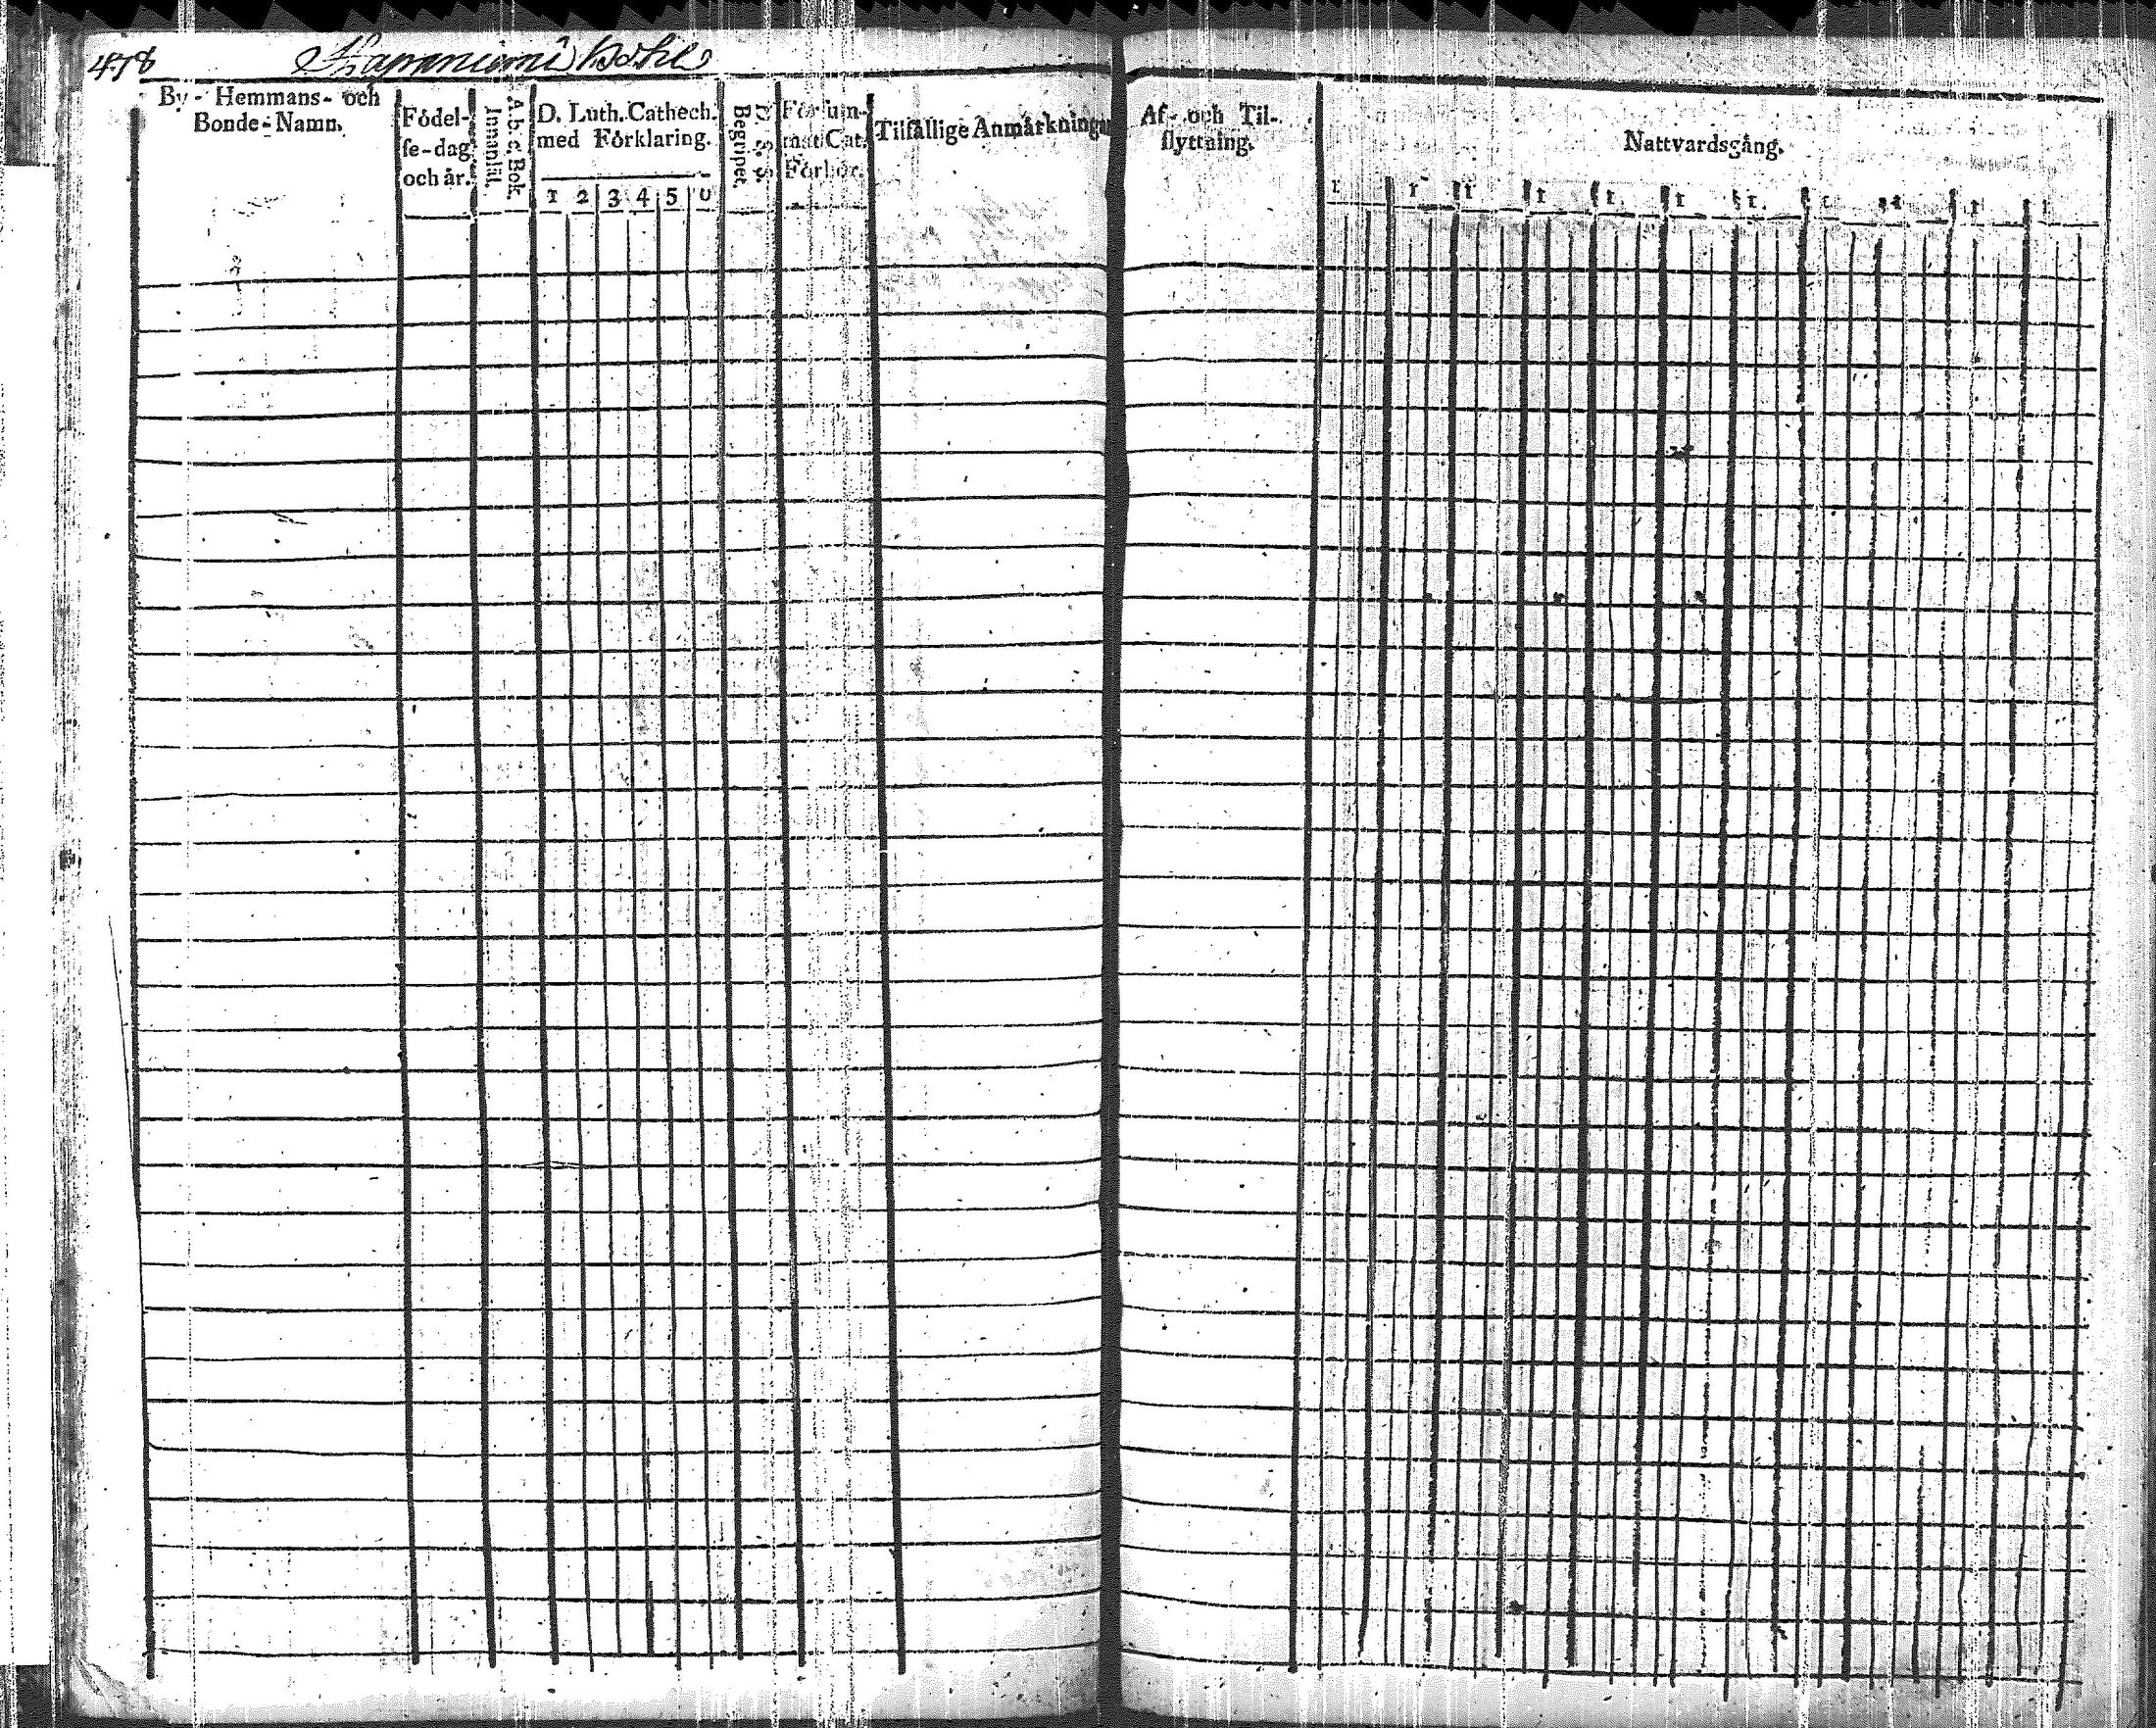 478
By - Hemmans- och
Bonde-Namn.
Födel-
se-dag
och år.
A.b.c.Bok.
Innantil.
D. Luth. Cathech.
med Förklaring.
1 2 3 4 5 0
Begripet.
Försum-
mat Cat.
Förhör.
Tilfällige Anmärkningar
Af- och Til-
flyttning.
Nattvardsgång.
1 1 1 1 1 1 1 1 1 1 1